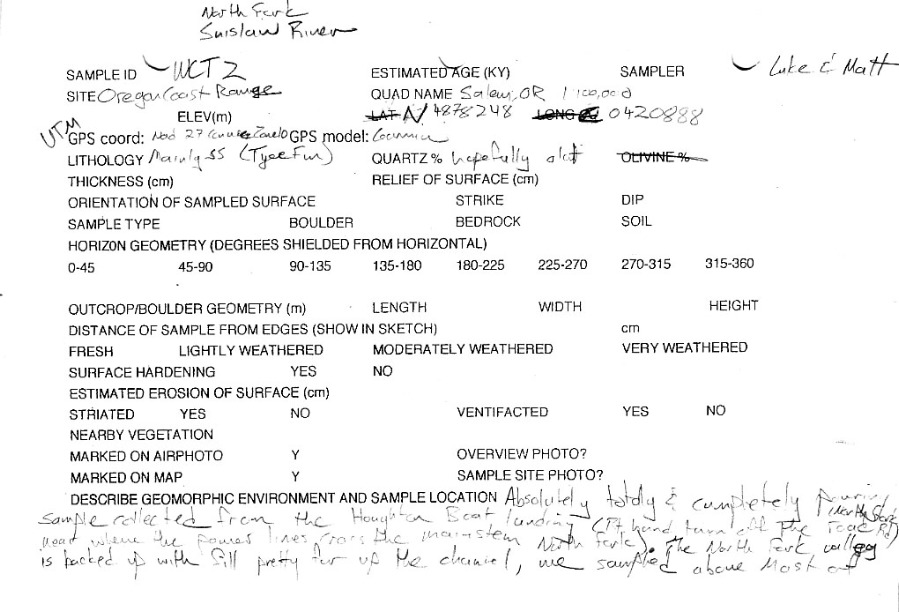 North Fork
Suislaw River
SAMPLE ID WCT 2 ESTIMATED AGE (KY) SAMPLER Luke & Matt
SITE Oregon Coast Range QUAD NAME Salem, OR 1:100,000
ELEV(m) LAT N 4878248 LONG 0420888
UTM GPS coord: Nad 27 GPS model: Garmin
LITHOLOGY Mainly SS (Tyee Fm) QUARTZ % hopefully alot OLIVINE %
THICKNESS (cm) RELIEF OF SURFACE (cm)
ORIENTATION OF SAMPLED SURFACE STRIKE DIP
SAMPLE TYPE BOULDER BEDROCK SOIL
HORIZON GEOMETRY (DEGREES SHIELDED FROM HORIZONTAL)
0-45 45-90 90-135 135-180 180-225 225-270 270-315 315-360
OUTCROP/BOULDER GEOMETRY (m) LENGTH WIDTH HEIGHT
DISTANCE OF SAMPLE FROM EDGES (SHOW IN SKETCH) cm
FRESH LIGHTLY WEATHERED MODERATELY WEATHERED VERY WEATHERED
SURFACE HARDENING YES NO
ESTIMATED EROSION OF SURFACE (cm)
STRIATED YES NO VENTIFACTED YES NO
NEARBY VEGETATION
MARKED ON AIRPHOTO Y OVERVIEW PHOTO?
MARKED ON MAP Y SAMPLE SITE PHOTO?
DESCRIBE GEOMORPHIC ENVIRONMENT AND SAMPLE LOCATION Absolutely totally & completely pouring
sample collected from the Houghton Boat landing (Rt hand turn off the North Fork Rd)
near where the power lines cross the mainstem North Fork). The North Fork valley
is backed up with fill pretty far up the channel, we sampled above most of